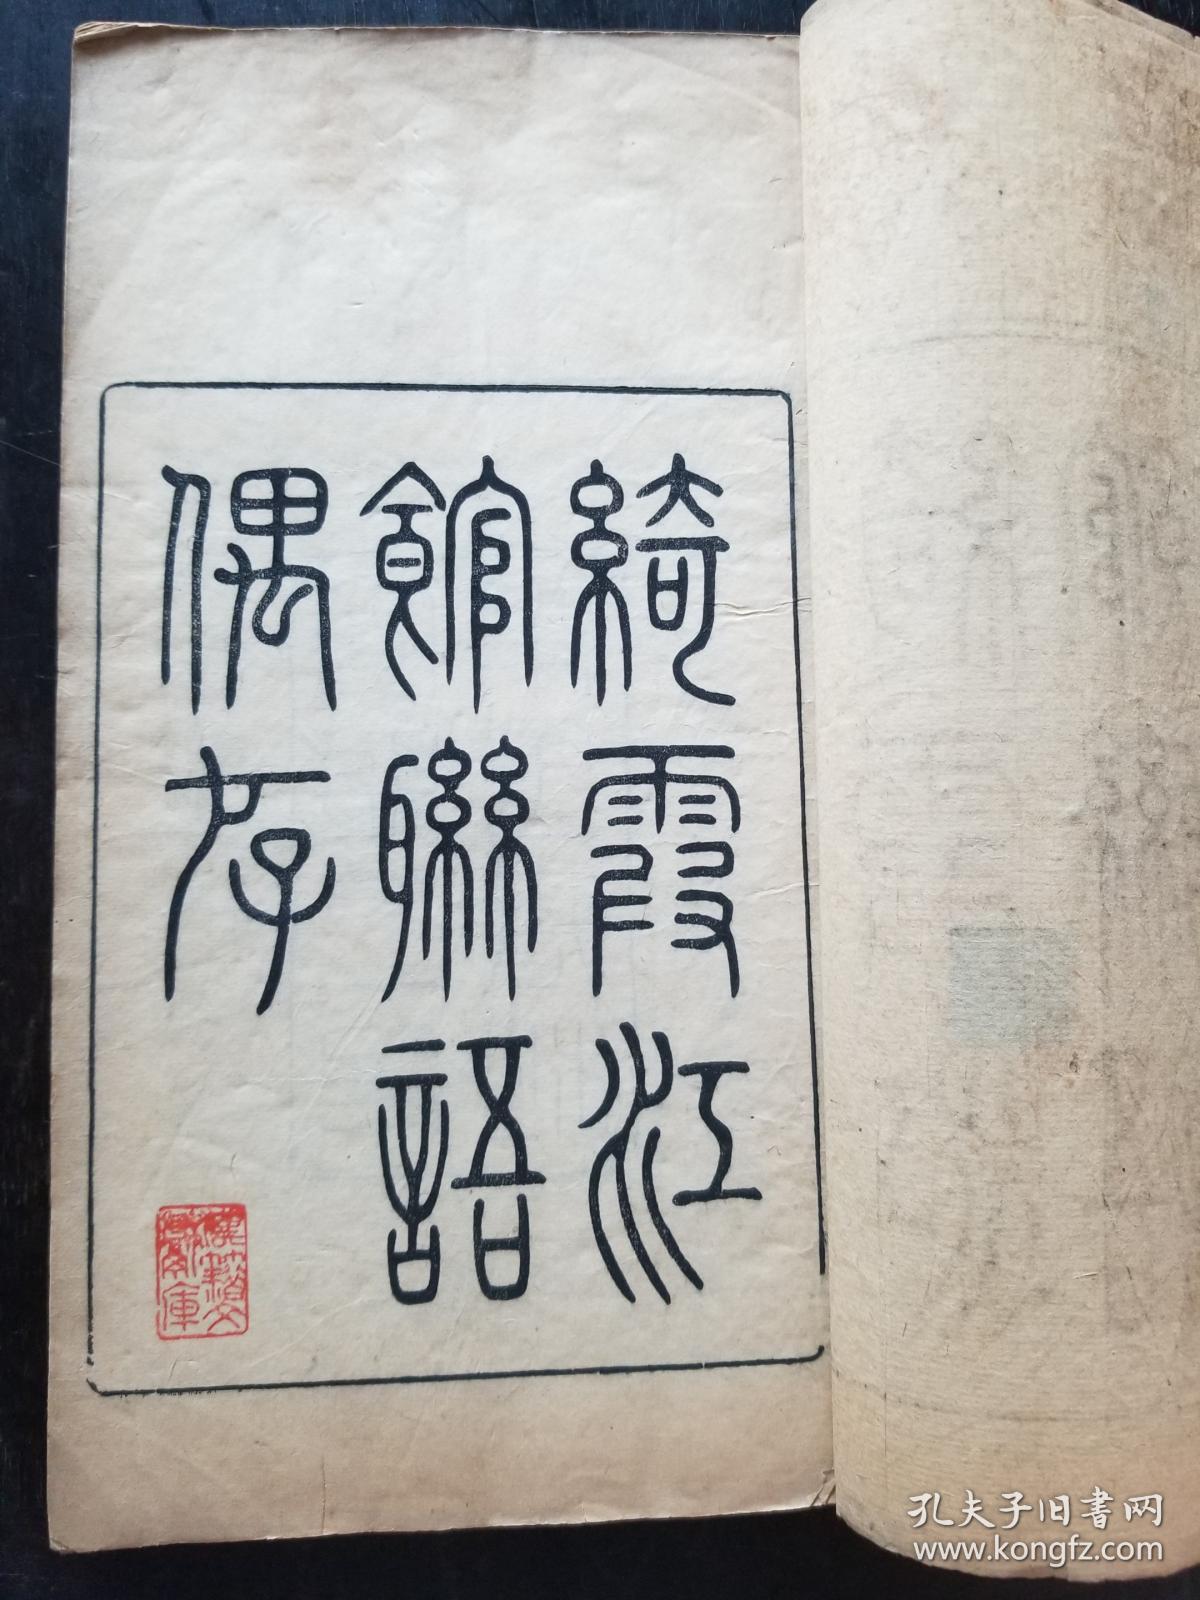 綺霞江
館聯語
偶存
孔夫子旧書网
www.kongfz.com